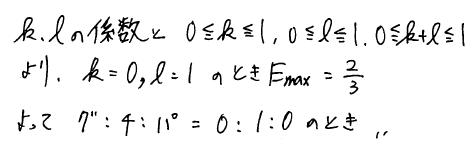 k, lの係数と 0≦k≦1, 0≦l≦1, 0≦k+l≦1
より、 k=0, l=1 のとき Emax = 2/3
よって グ:チ:パ = 0:1:0 のとき 〃